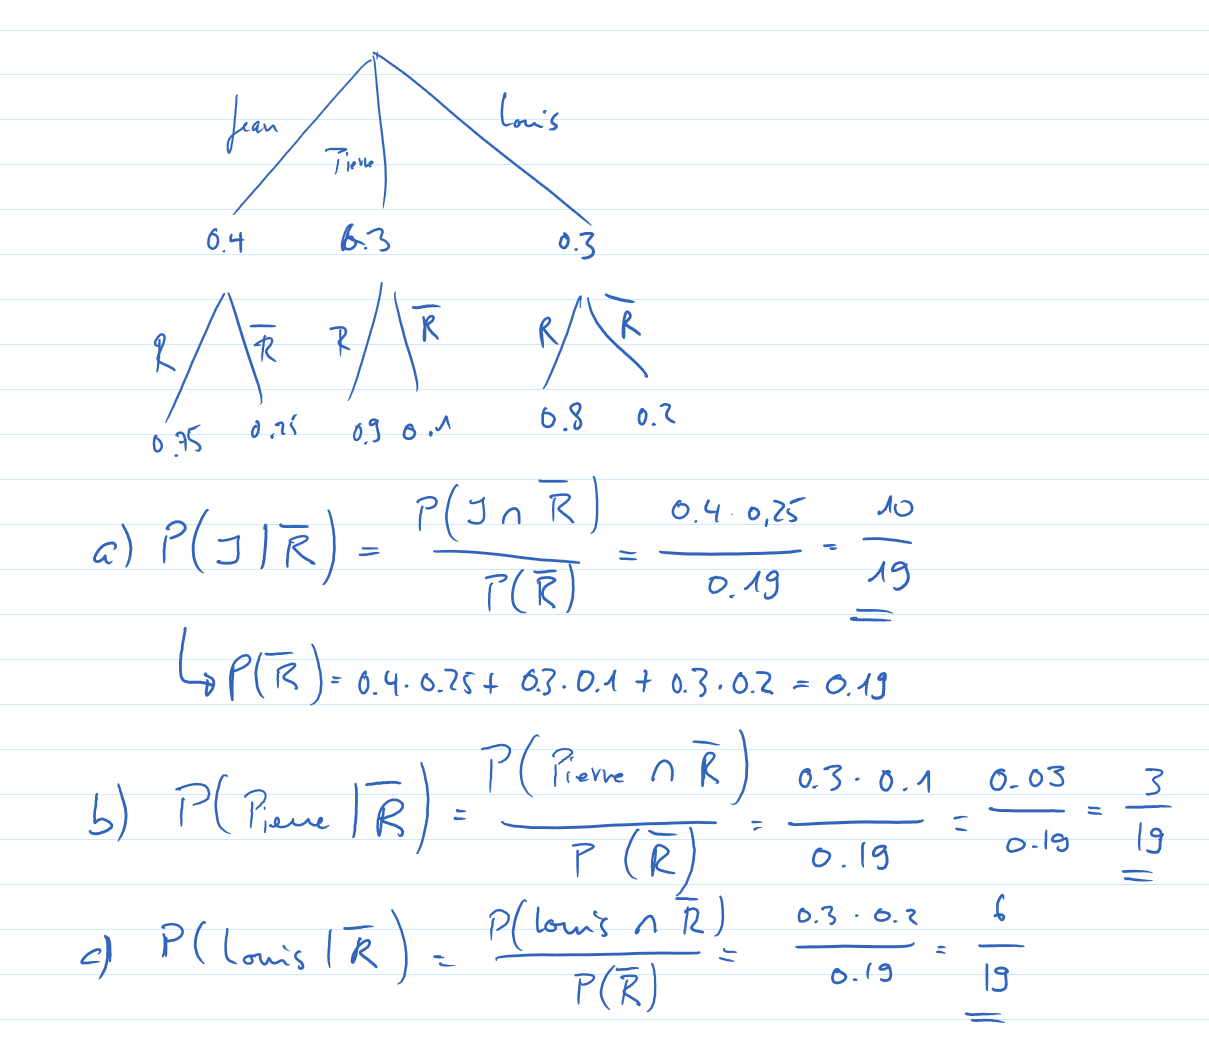 Jean Pierre Louis
0.4 0.3 0.3
R R̅ R R̅ R R̅
0.75 0.25 0.9 0.1 0.8 0.2
a) P(J|R̅) = P(J∩R̅) / P(R̅) = 0.4·0,25 / 0.19 = 10/19
↳ P(R̅) = 0.4·0.25 + 0.3·0.1 + 0.3·0.2 = 0.19
b) P(Pierre|R̅) = P(Pierre ∩ R̅) / P(R̅) = 0.3·0.1 / 0.19 = 0.03 / 0.19 = 3/19
c) P(Louis|R̅) = P(Louis ∩ R̅) / P(R̅) = 0.3·0.2 / 0.19 = 6/19